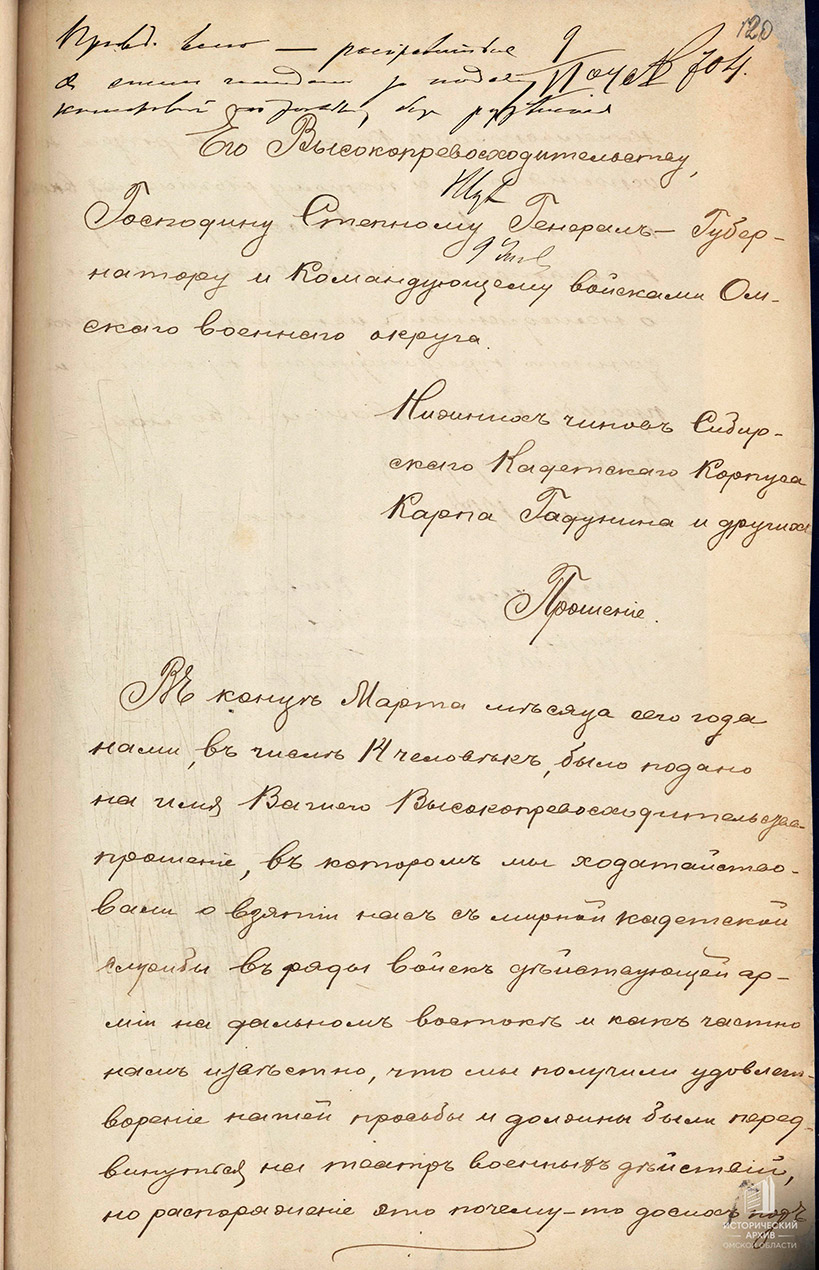 120
904.
Его Высокопревосходительству,
Господину Степному Генералъ-Губер-
натору и Командующему войсками Ом-
скаго военнаго округа.
Нижнихъ чиновъ Сибир-
скаго Кадетскаго Корпуса
Карпа Гадунина и другихъ
Прошеніе.
Въ концѣ Марта мѣсяца сего года
нами, въ числѣ 14 человѣкъ, было подано
на имя Вашего Высокопревосходительства
прошеніе, въ которомъ мы ходатайство-
вали о взятіи насъ съ мирной кадетской
службы въ ряды войскъ дѣйствующей ар-
міи на дальномъ востокѣ и какъ частно
намъ извѣстно, что мы получили удовлет-
вореніе нашей просьбы и должны были перед-
винуться на театръ военныхъ дѣйствій,
но распоряженіе это почему-то до сихъ поръ
ИСТОРИЧЕСКИЙ
АРХИВ
ОМСКОЙ ОБЛАСТИ